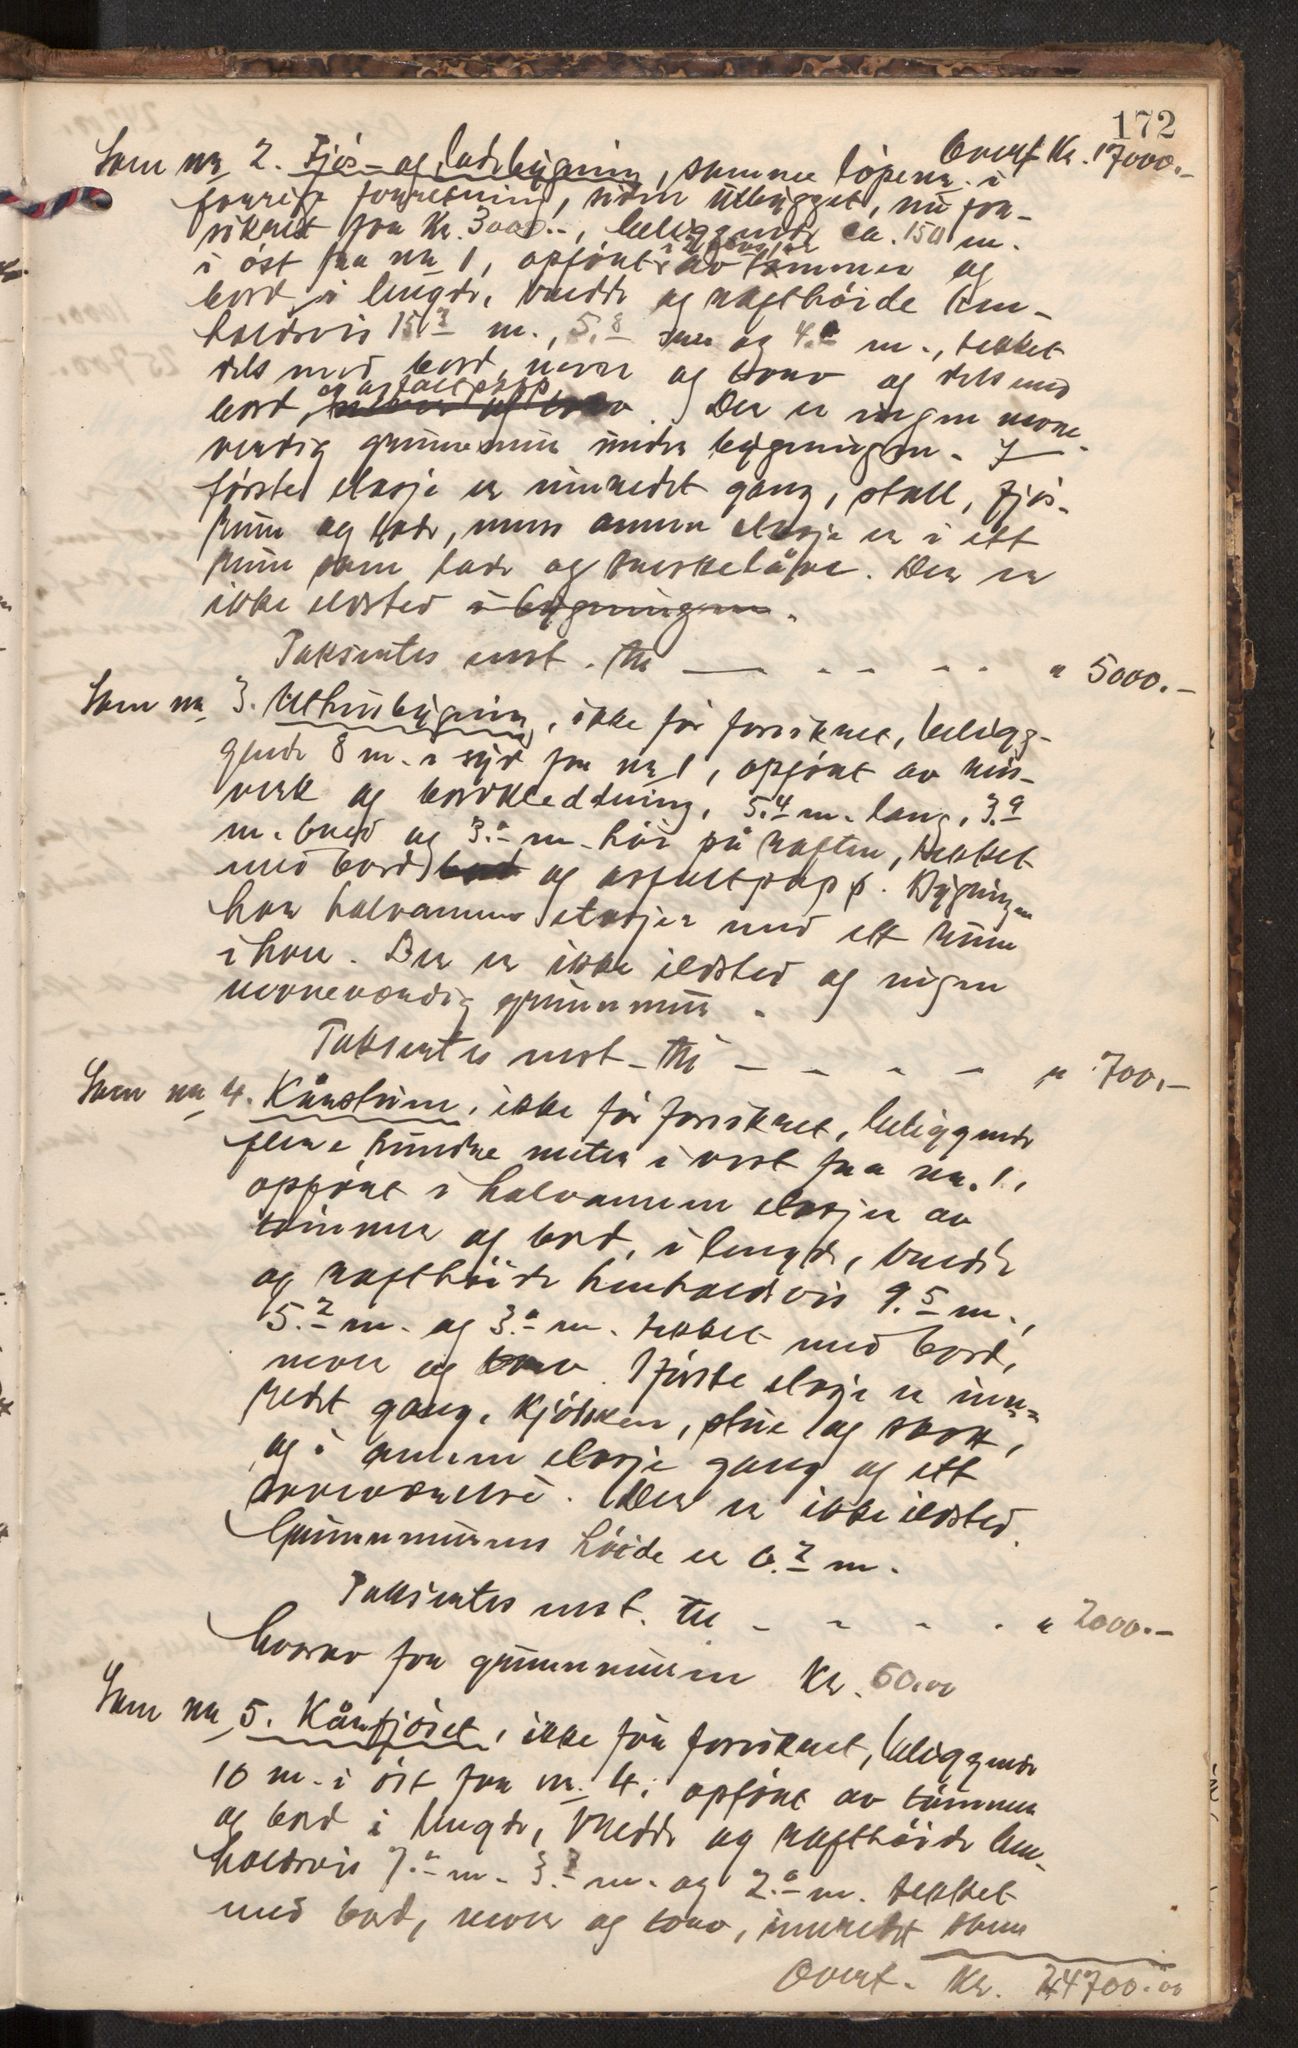 172
Overf. Kr. 17000.-
Som nr. 2. Fjös- og ladebygning, samme löpenr. i
forrige forretning, siden utbygget, nu for-
sikret for Kr. 3000.-, beliggende ca. 150 m.
i öst fra nr. 1, opfört i 2 etasjer av tömmer og
bord, i lengde, bredde og rafthöide hen-
holdsvis 15.3 m., 5.8 m og 4.0 m., tekket
dels med bord, never og torv og dels med
bord og asfaltpapp never og torv. Der er ingen nevne-
verdig grunnmur under bygningen. I
förste etasje er innredet gang, stall, fjös-
rum og lade, mens annen etasje er i ett
rum som lade og treskelåve. Der er
ikke ildsted i bygningen.
Taksertes enst. til - - - - - " 5000.-
Som nr. 3. Uthusbygning, ikke för forsikret, belig-
gende 8 m. i syd fra nr. 1, opfört av reis-
verk og bordkledning, 5.4 m. lang, 3.9
m. bred og 3.0 m. höi på raften, tekket
med bord og asfaltpapp. Bygningen
har halvannen etasjer med ett rum
i hver. Der er ikke ildsted og ingen
nevneverdig grunnmur.
Taksertes enst. til - - - - " 700.-
Som nr. 4. Kårstuen, ikke för forsikret, beliggende
flere hundre meter i vest fra nr. 1,
opfört i halvannen etasjer av
tömmer og bord, i lengde, bredde
og rafthöide henholdsvis 9.5 m.,
5.2 m. og 3.0 m. tekket med bord,
never og torv. I förste etasje er inn-
redet gang, kjökken, stue og kott,
og i annen etasje gang og ett
soveværelse. Der er ikke ildsted.
Grunnmurens höide er 0.2 m.
Taksertes enst. til - - - - " 2000.-
hvorav for grunnmuren Kr. 60.00
Som nr. 5. Kårfjöset, ikke för forsikret, beliggende
10 m. i öst fra nr. 4, opfört av tömmer
og bord i lengde, bredde og rafthöide hen-
holdsvis 7.0 m. 3.7 m. og 2.0 m. tekket
med bord, never og torv, innredet som
Overf. Kr. 24700.00